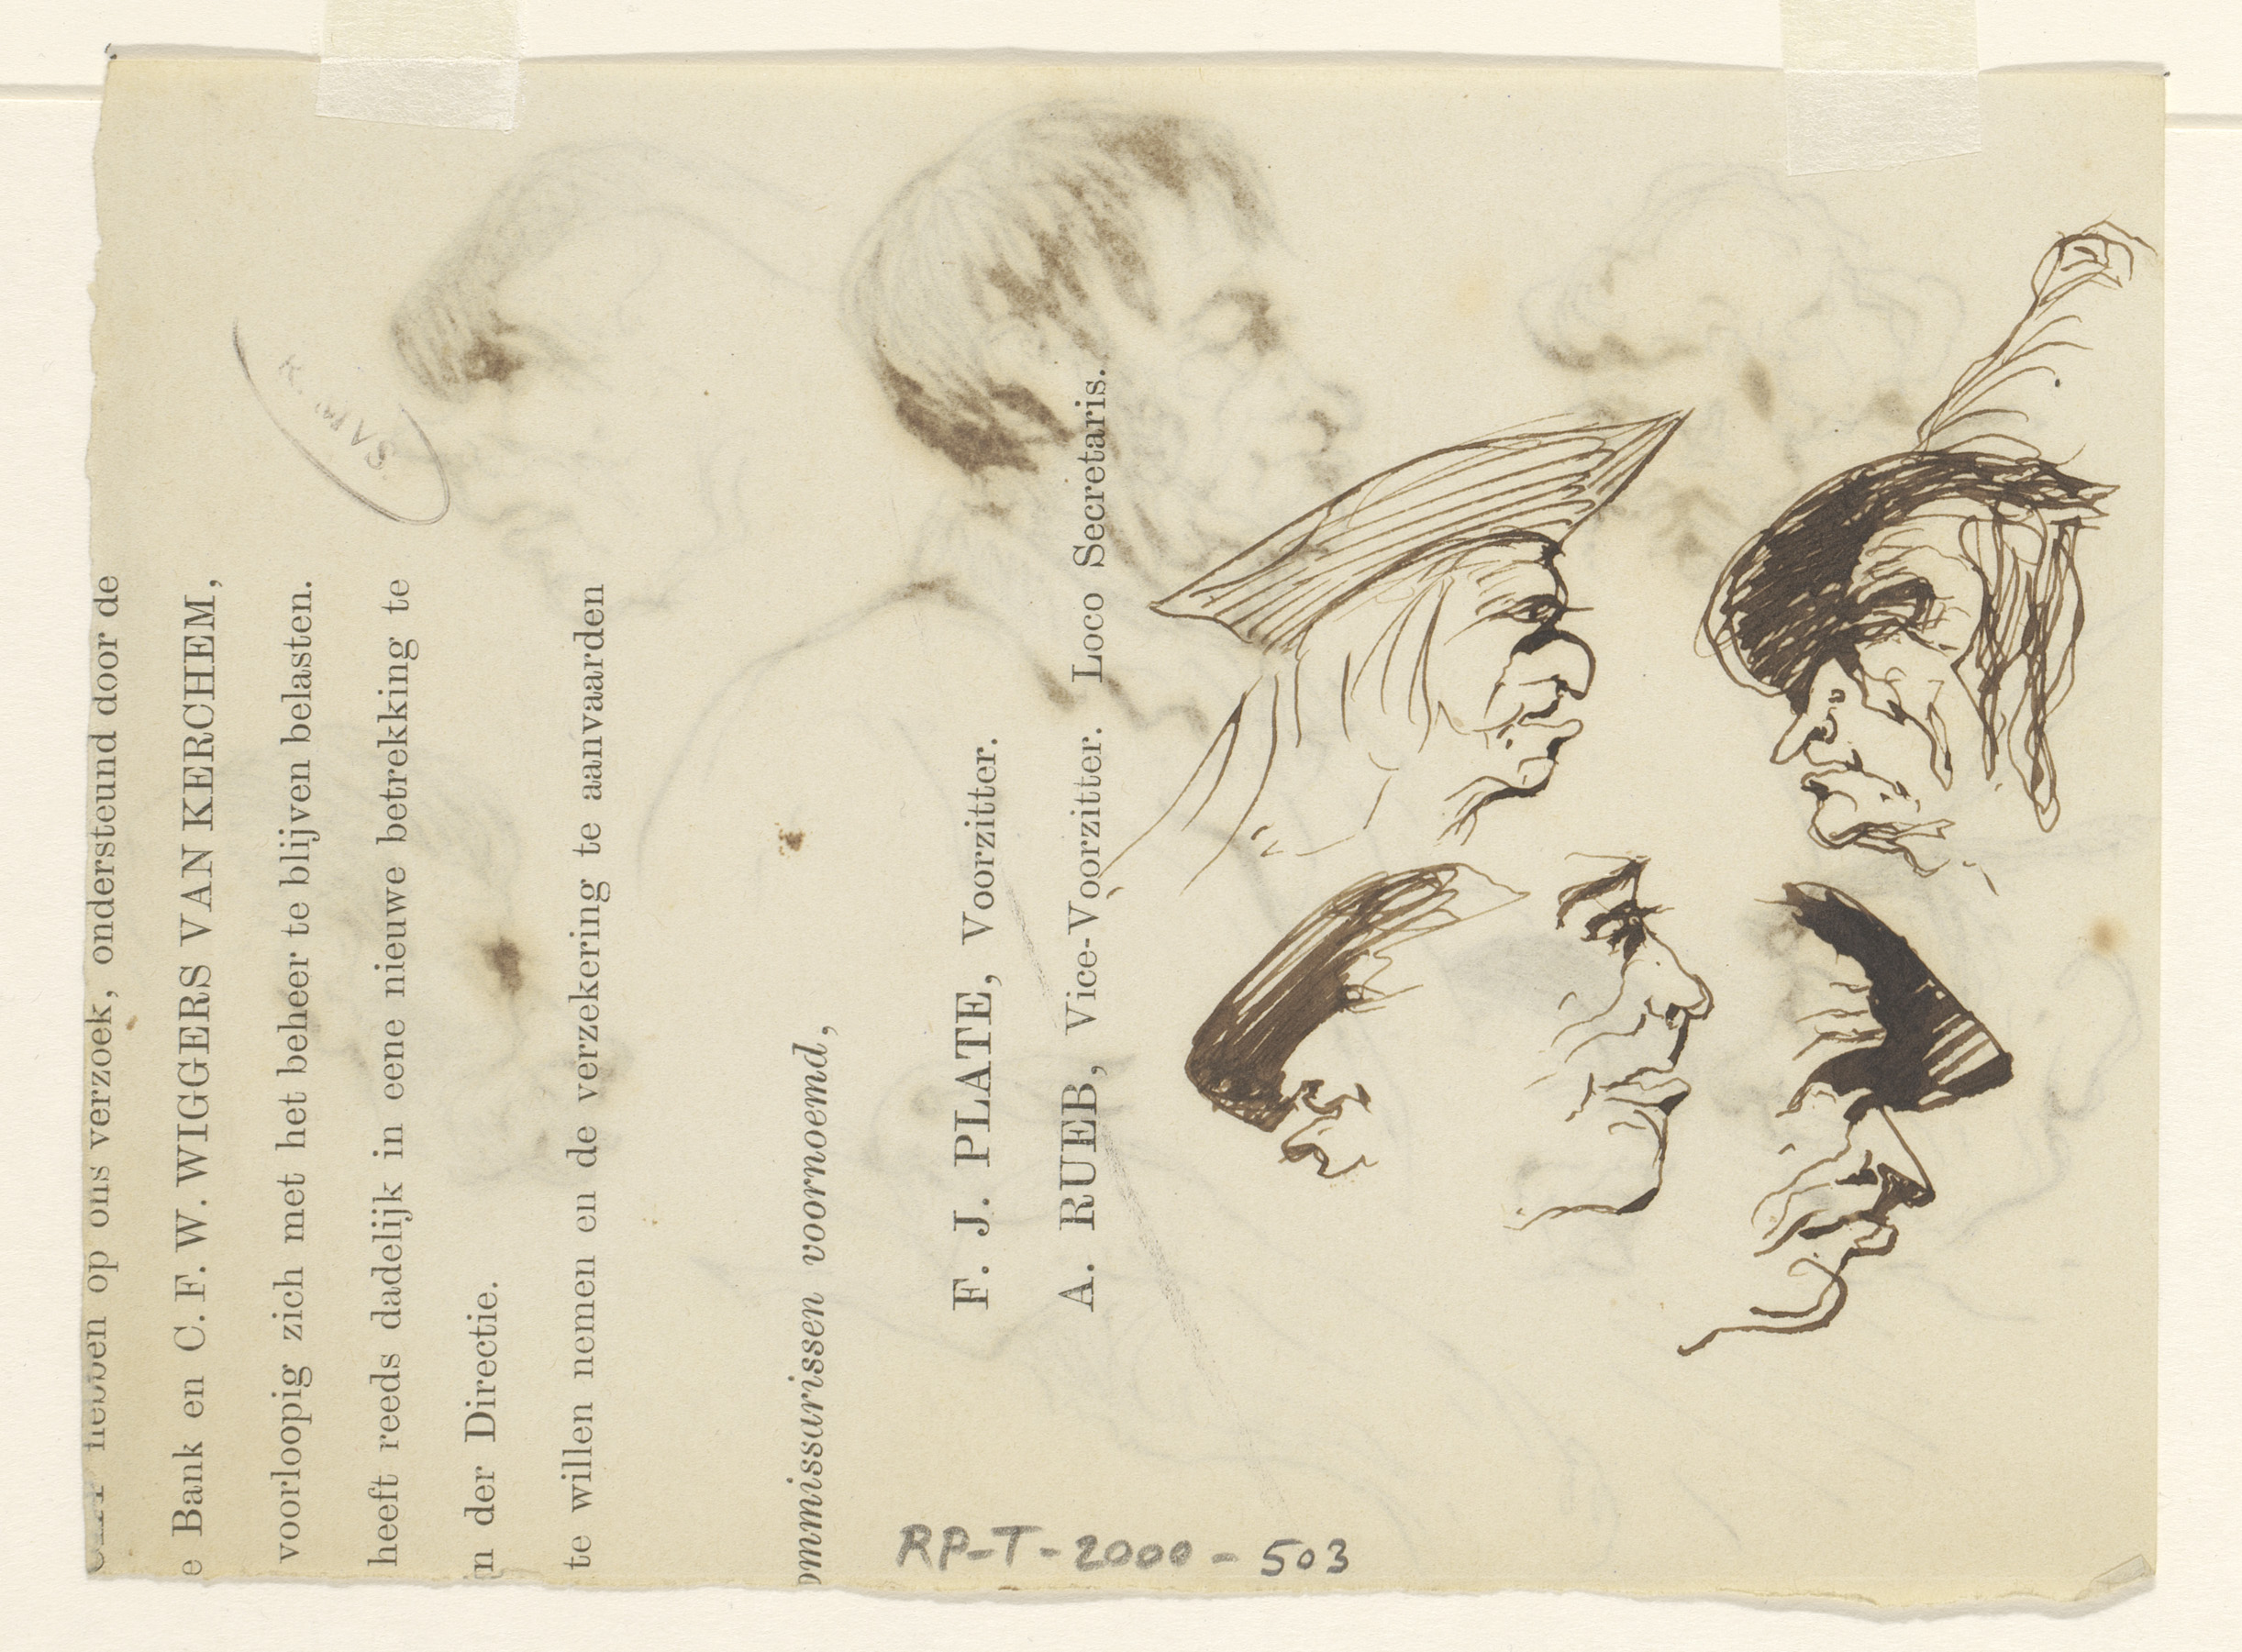 hebben op ons verzoek, ondersteund door de
e Bank en C. F. W. WIGGERS VAN KERCHEM,
voorloopig zich met het beheer te blijven belasten.
heeft reeds dadelijk in eene nieuwe betrekking te
n der Directie.
te willen nemen en de verzekering te aanvaarden
ommissarissen voornoemd,
F. J. PLATE, Voorzitter.
A. RUEB, Vice-Voorzitter. Loco Secretaris.
RP-T-2000-503